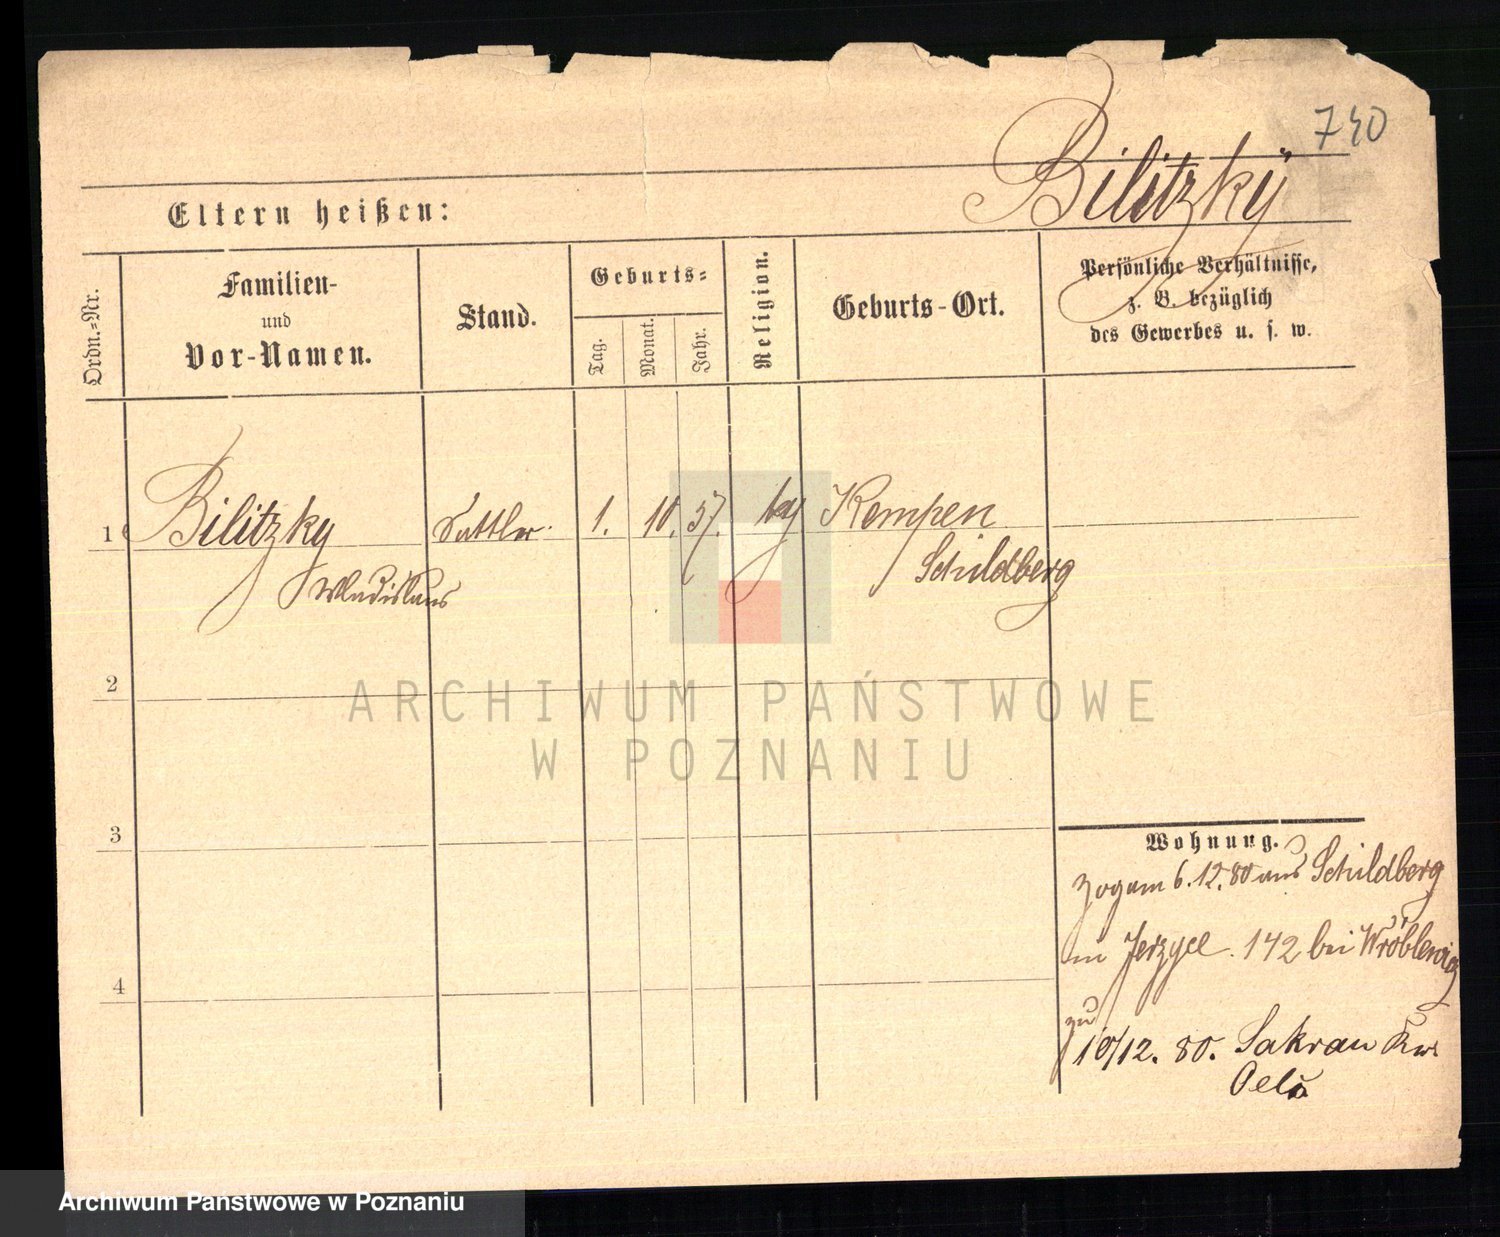 740
Bilitzky
Eltern heißen:
Ordn.=Nr.
Familien-
und
Vor-Namen.
Stand.
Geburts=
Tag.
Monat.
Jahr.
Religion.
Geburts-Ort.
Persönliche Verhältnisse,
z. B. bezüglich
des Gewerbes u. s. w.
1 Bilitzky Sattler 1. 10. 57. Kempen
Wladislaus Schildberg
2
3
4
Wohnung.
zog am 6.12.80 aus Schildberg
in Jerzyce. 142 bei
10/12. 80. Sakrau Krs
Oels
ARCHIWUM PAŃSTWOWE
W POZNANIU
Archiwum Państwowe w Poznaniu